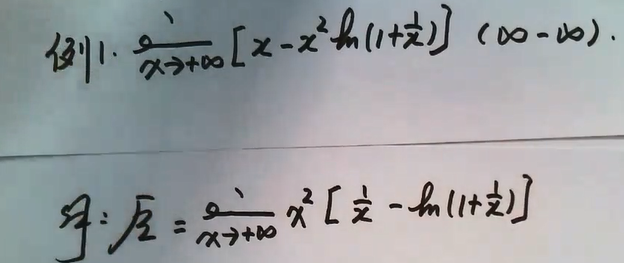 例1. lim x→+∞ [x - x² ln(1+1/x)] (∞-∞).
解: 原 = lim x→+∞ x² [1/x - ln(1+1/x)]